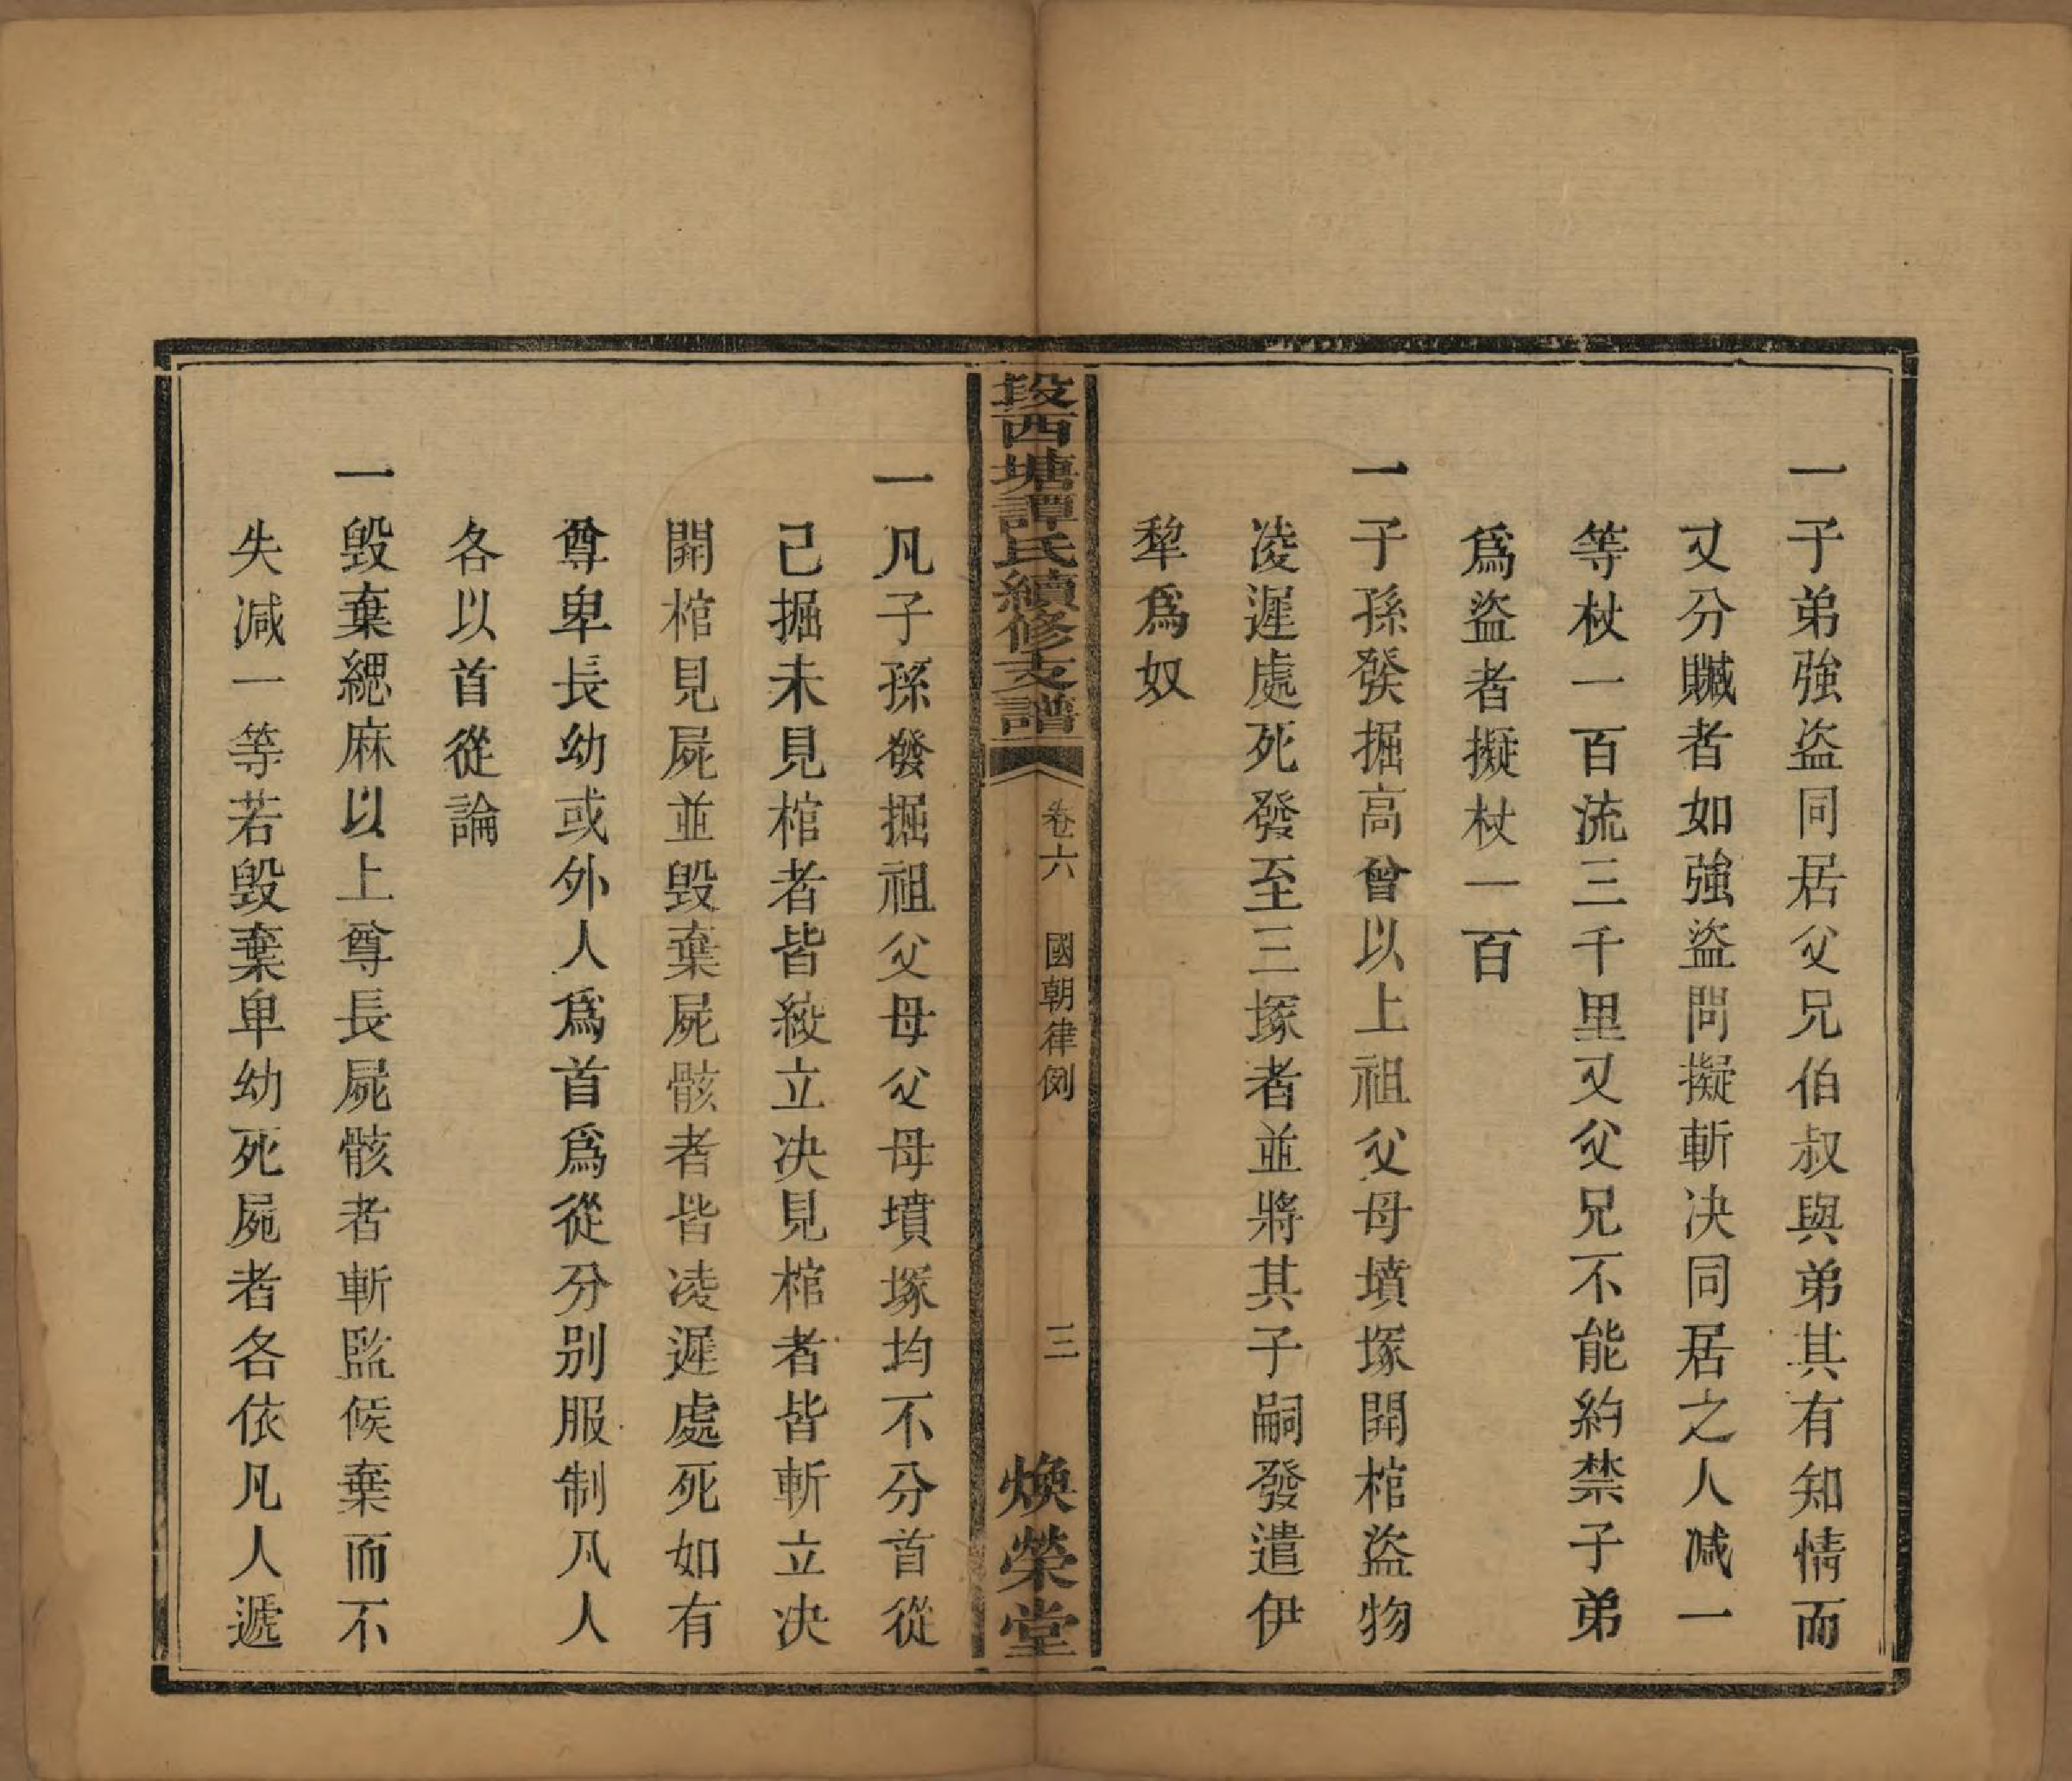 一子弟強盜同居父兄伯叔與弟其有知情而
又分贓者如強盜問擬斬決同居之人減一
等杖一百流三千里又父兄不能約禁子弟
爲盜者擬杖一百
一子孫發掘高曾以上祖父母墳塚開棺盜物
凌遲處死發至三塚者並將其子嗣發遣伊
犂爲奴
段西塘譚氏續修支譜
卷六 國朝律例 三
煥榮堂
一凡子孫發掘祖父母父母墳塚均不分首從
已掘未見棺者皆絞立決見棺者皆斬立決
開棺見屍並毀棄屍骸者皆凌遲處死如有
尊卑長幼或外人爲首爲從分別服制凡人
各以首從論
一毀棄緦麻以上尊長屍骸者斬監候棄而不
失減一等若毀棄卑幼死屍者各依凡人遞